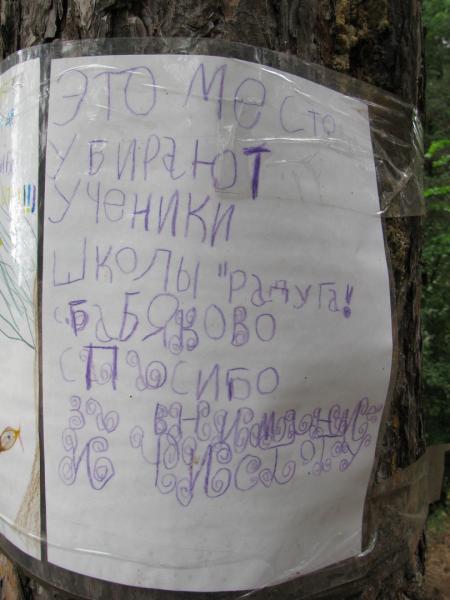 ЭТО МЕСТО
УБИРАЮТ
УЧЕНИКИ
ШКОЛЫ "РАДУГА!
С БАБЯКОВО
СПАСИБО
ЗА ВАНИМАНИЕ
И ЧИСТОТУ